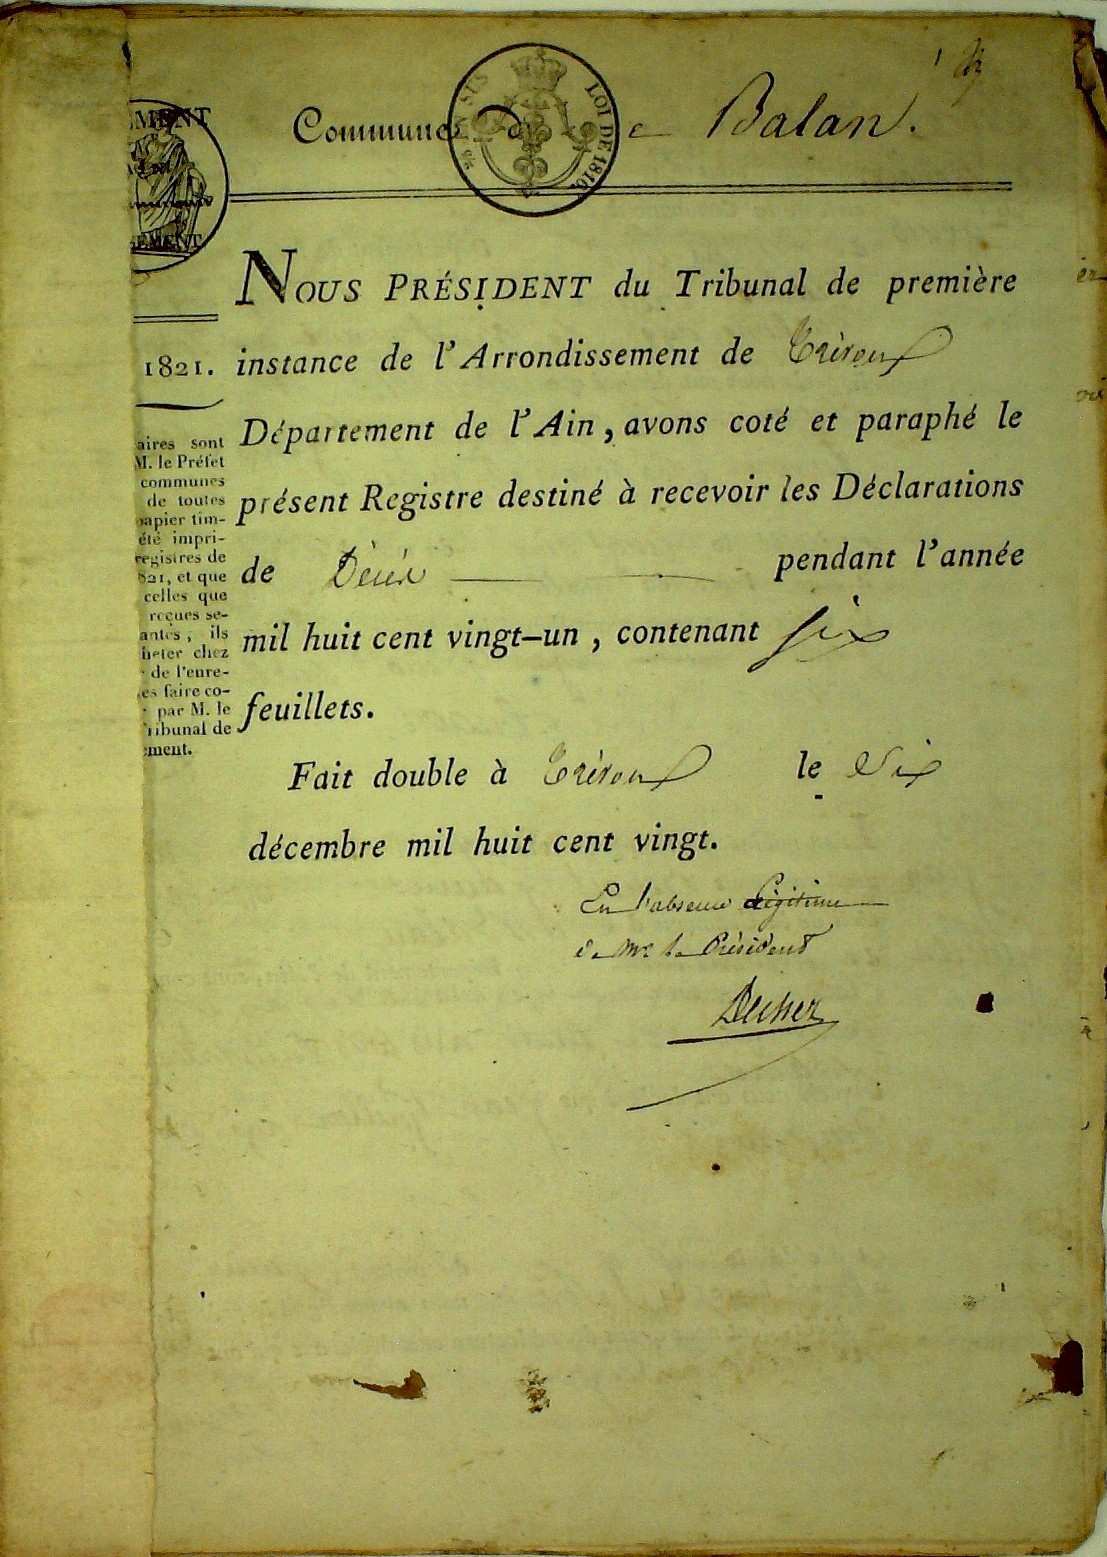 Commune de Balan.
LOI DE 1816.
NOUS PRÉSIDENT du Tribunal de première
instance de l'Arrondissement de Trévoux
Département de l'Ain, avons coté et paraphé le
présent Registre destiné à recevoir les Déclarations
de Décès pendant l'année
mil huit cent vingt-un, contenant six
feuillets.
Fait double à Trévoux le Six
décembre mil huit cent vingt.
En l'absence Légitime
de Mr le Président
1821.
aires sont
M. le Préfet
communes
de toutes
papier tim-
été impri-
registres de
821, et que
celles que
reçues se-
antes, ils
heter chez
de l'enre-
es faire co-
par M. le
ribunal de
ment.